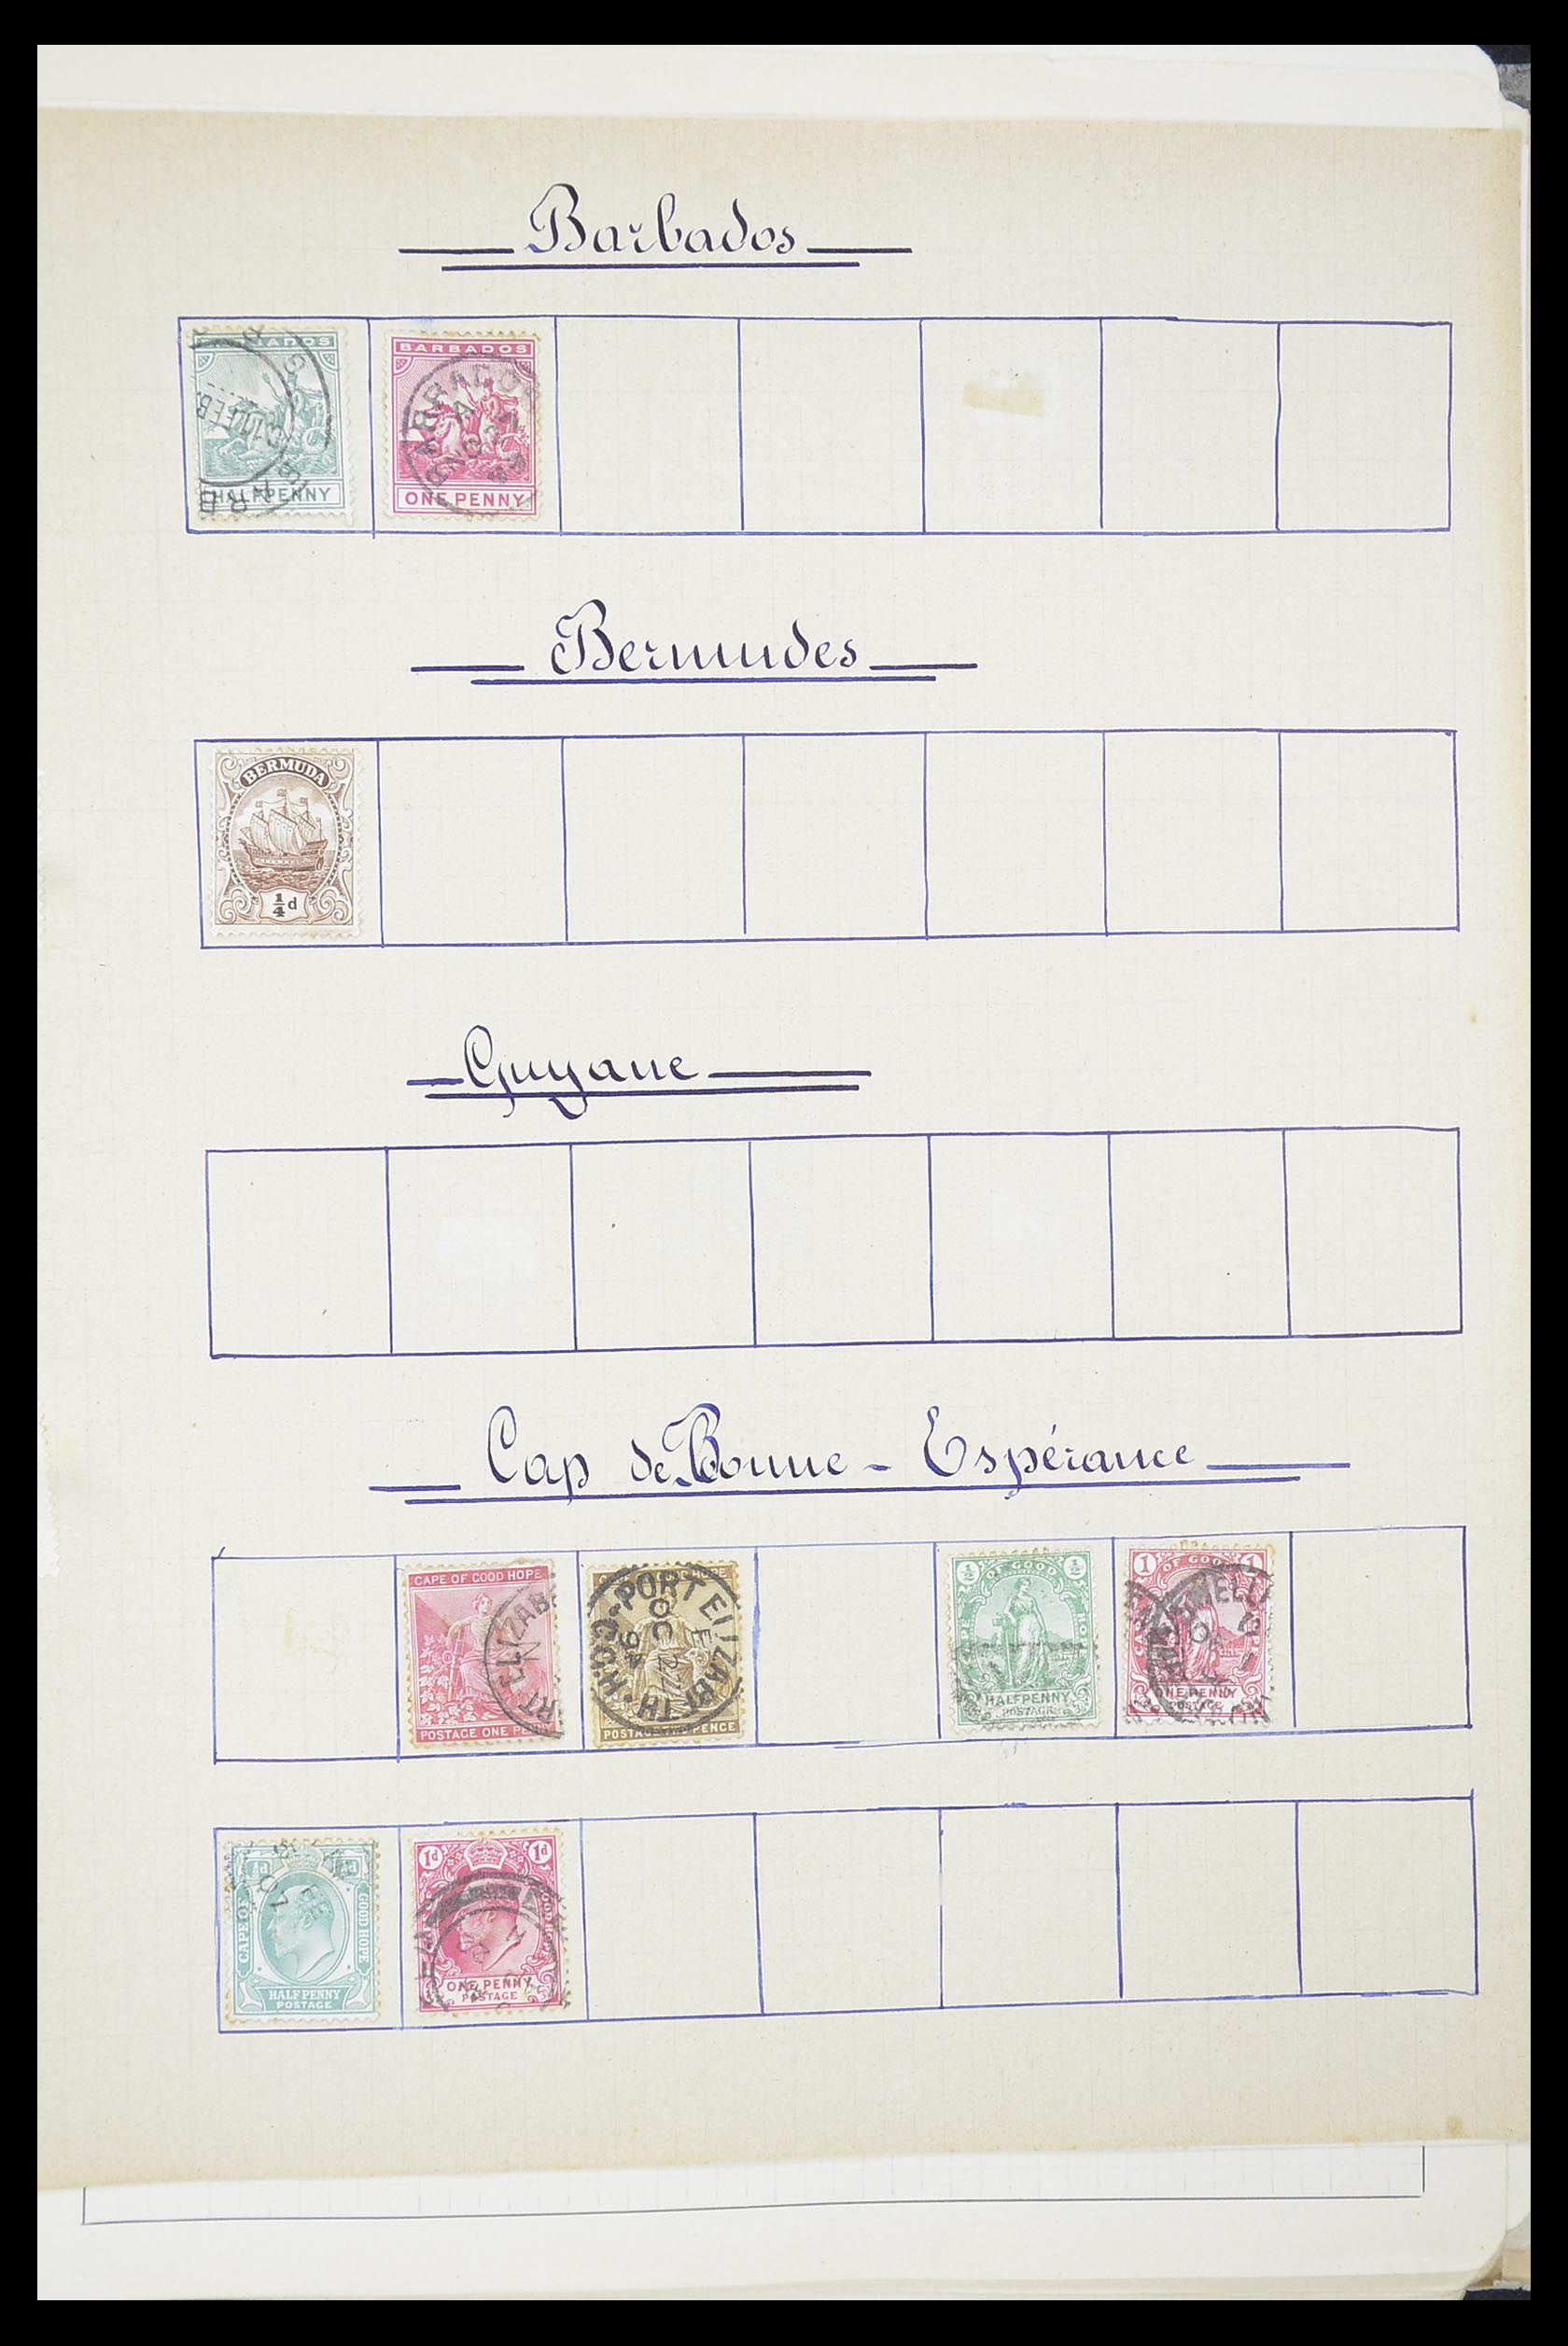 Barbados
BARBADOS
HALFPENNY
BARBADOS
ONE PENNY
Bermudes
BERMUDA
1/4 d
Guyane
Cap de Bonne - Espérance
CAPE OF GOOD HOPE
POSTAGE ONE PENNY
PORT ELIZABETH
OC 27
94
C.G.H.
1/2 OF GOOD 1/2
HALFPENNY
POSTAGE
1 OF GOOD 1
ONE PENNY
POSTAGE
CAPE OF GOOD HOPE
HALFPENNY
POSTAGE
1d 1d
ONE PENNY
POSTAGE